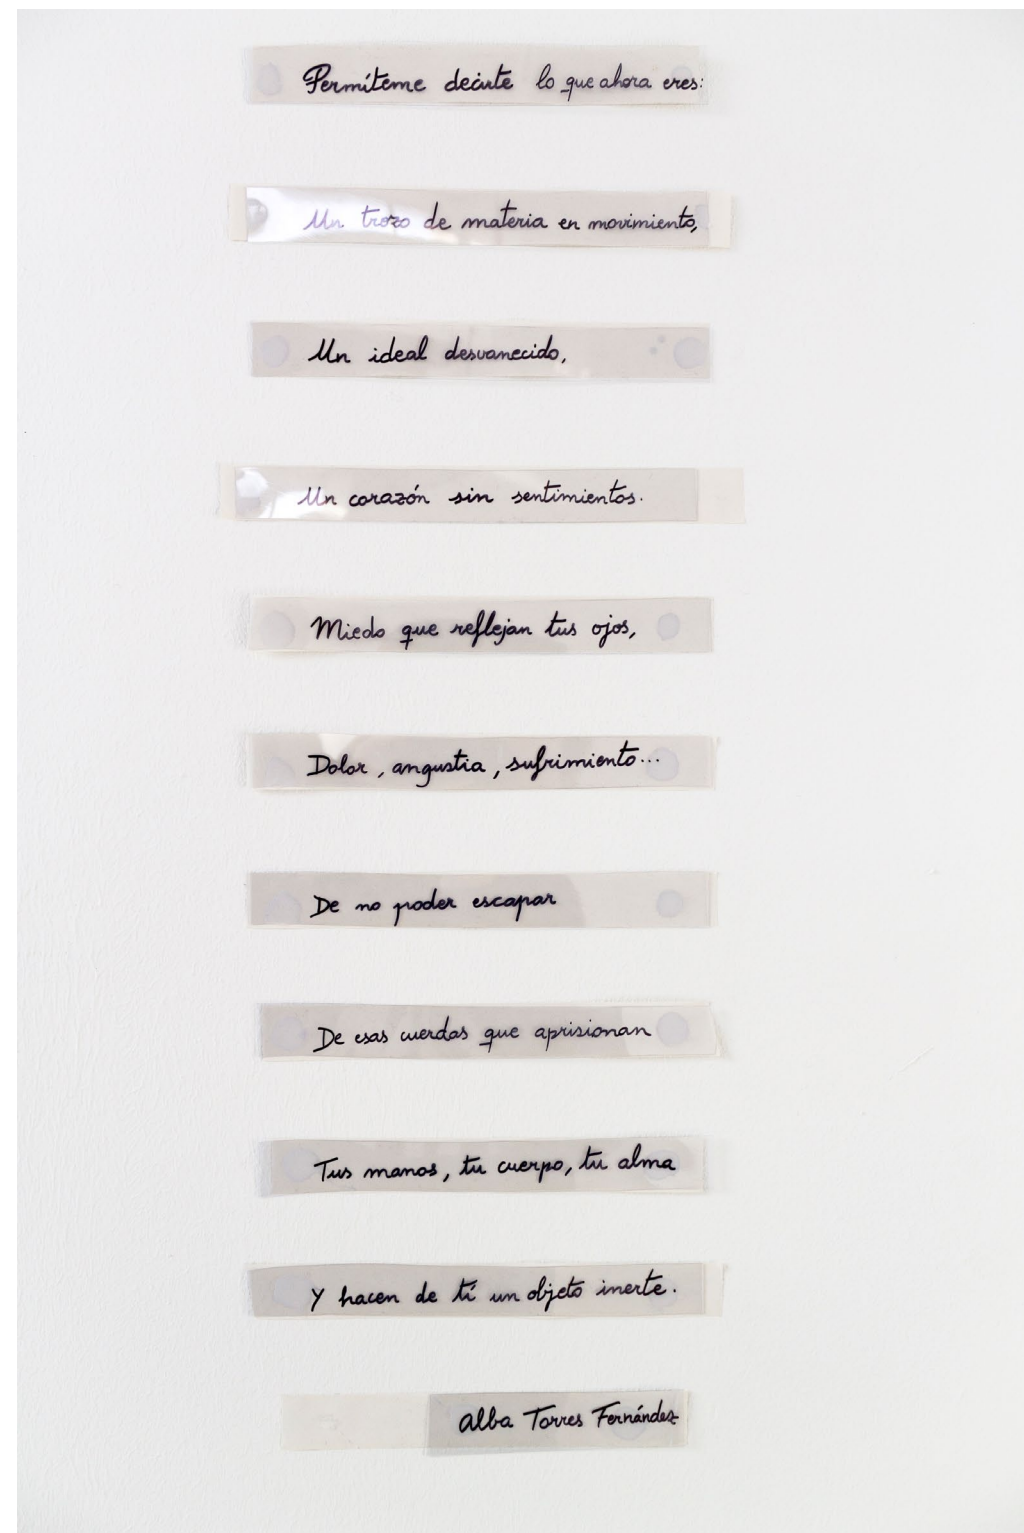 Permíteme decirte lo que ahora eres:
Un trozo de materia en movimiento,
Un ideal desvanecido,
Un corazón sin sentimientos.
Miedo que reflejan tus ojos,
Dolor, angustia, sufrimiento...
De no poder escapar
De esas cuerdas que aprisionan
Tus manos, tu cuerpo, tu alma
Y hacen de tí un objeto inerte.
Alba Torres Fernández